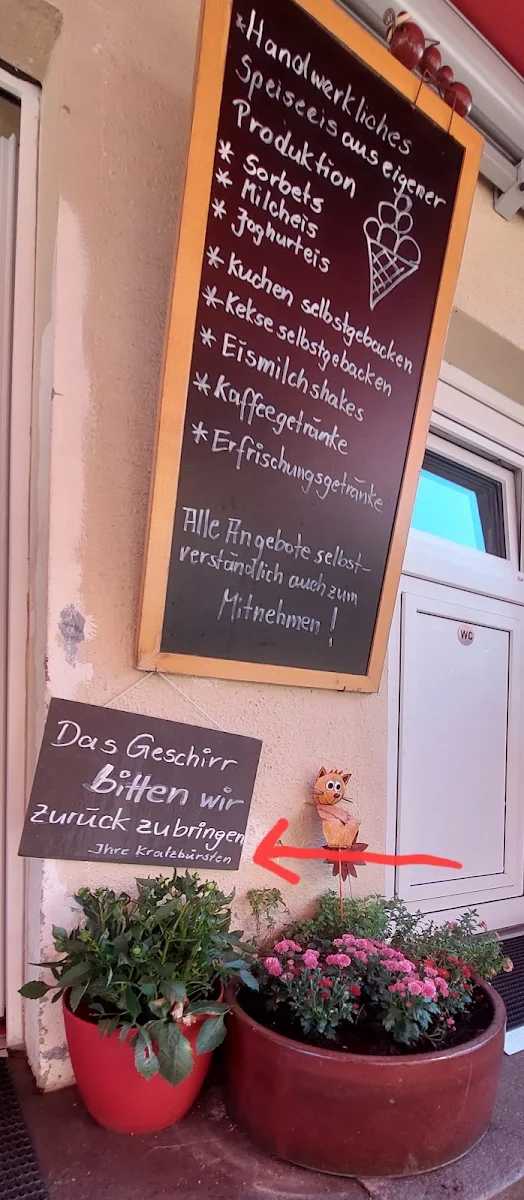 *Handwerkliches
Speiseeis aus eigener
Produktion
* Sorbets
* Milcheis
* Joghurteis
* Kuchen selbstgebacken
* Kekse selbstgebacken
* Eismilchshakes
* Kaffeegetränke
* Erfrischungsgetränke
Alle Angebote selbst-
verständlich auch zum
Mitnehmen !
WC
Das Geschirr
bitten wir
zurück zubringen
Ihre Kratzbürsten